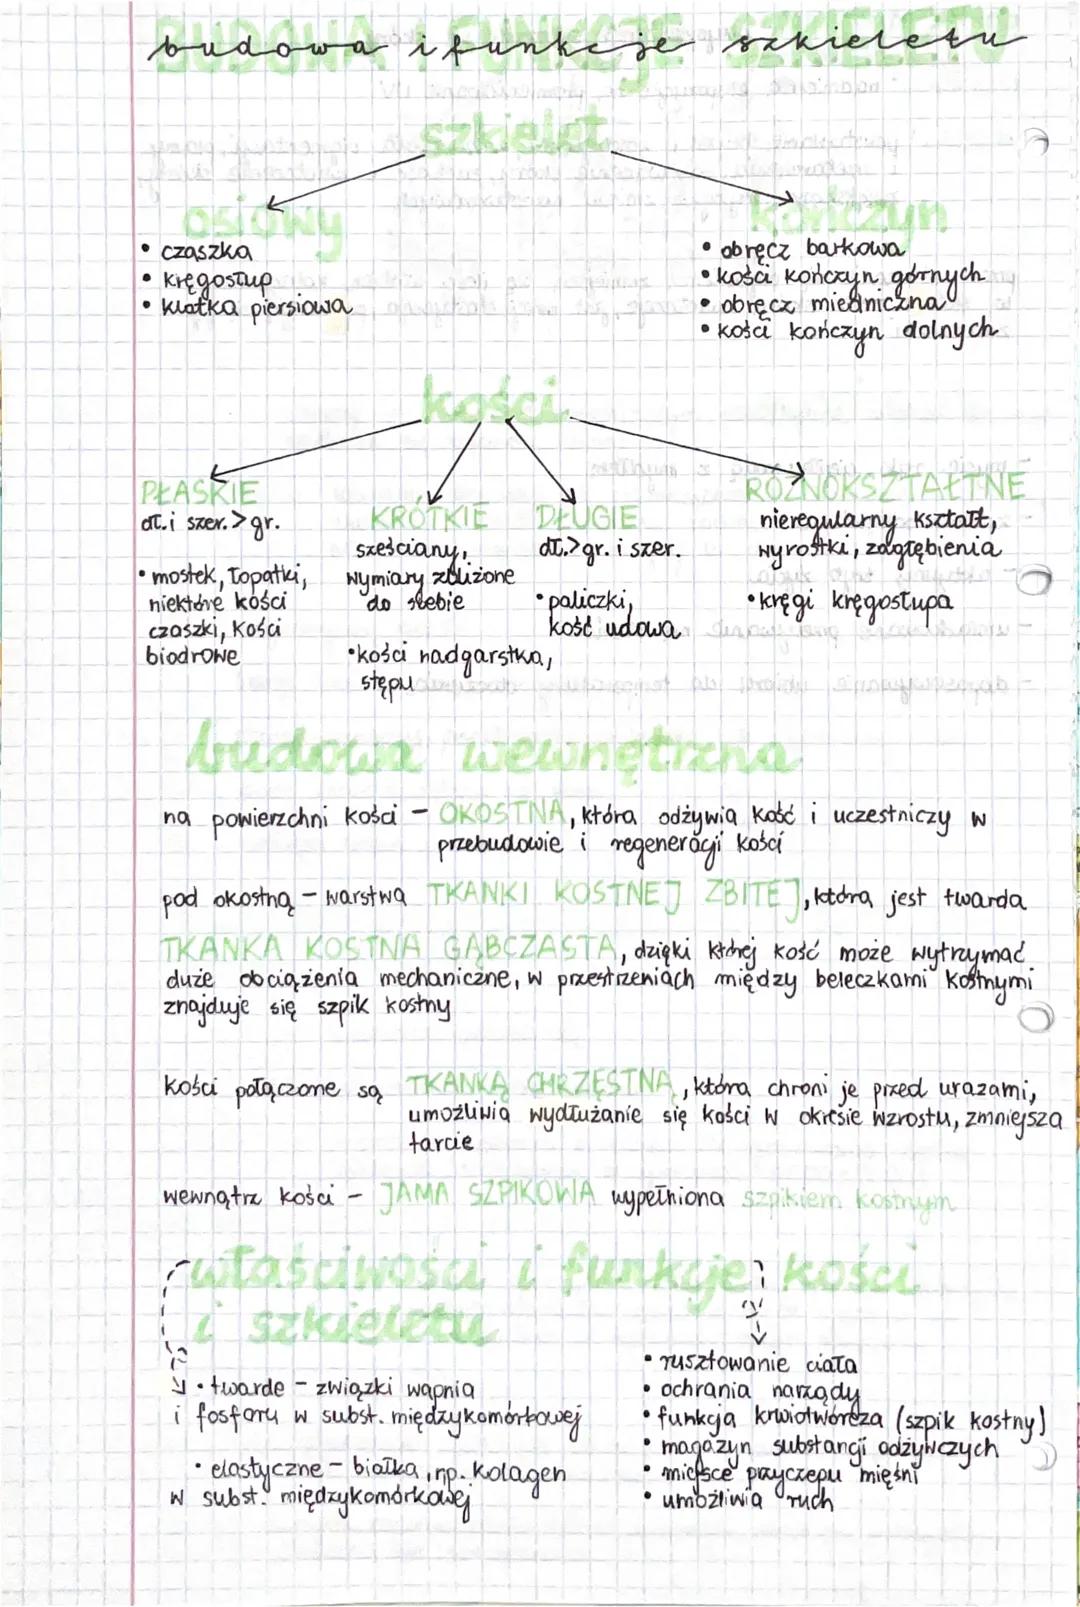 BUDOWA i FUNKCJE SZKIELETU
budowa i funkcje szkieletu
szkielet
osiowy
• czaszka
• kręgosłup
• klatka piersiowa
kończyn
• obręcz barkowa
• kości kończyn górnych
• obręcz miedniczna
• kości kończyn dolnych
kości
PŁASKIE
dł. i szer. > gr.
• mostek, łopatki,
niektóre kości
czaszki, kości
biodrowe
KRÓTKIE
sześciany,
wymiary zbliżone
do siebie
•kości nadgarstka,
stępu
DŁUGIE
dł.>gr. i szer.
•paliczki,
kość udowa
RÓŻNOKSZTAŁTNE
nieregularny kształt,
wyrostki, zagłębienia
•kręgi kręgosłupa
budowa wewnętrzna
na powierzchni kości - OKOSTNA, która odżywia kość i uczestniczy w
przebudowie i regeneracji kości
pod okostną - warstwa TKANKI KOSTNEJ ZBITEJ, która jest twarda
TKANKA KOSTNA GĄBCZASTA, dzięki której kość może wytrzymać
duże obciążenia mechaniczne, w przestrzeniach między beleczkami kostnymi
znajduje się szpik kostny
kości połączone są TKANKĄ CHRZĘSTNĄ, która chroni je przed urazami,
umożliwia wydłużanie się kości w okresie wzrostu, zmniejsza
tarcie
wewnątrz kości - JAMA SZPIKOWA wypełniona szpikiem kostnym
właściwości i funkcje kości
i szkieletu
• twarde - związki wapnia
i fosforu w subst. międzykomórkowej
• elastyczne - białka, np. kolagen
w subst. międzykomórkowej
• rusztowanie ciała
• ochrania narządy
• funkcja krwiotwórcza (szpik kostny)
• magazyn substancji odżywczych
• miejsce przyczepu mięśni
• umożliwia ruch